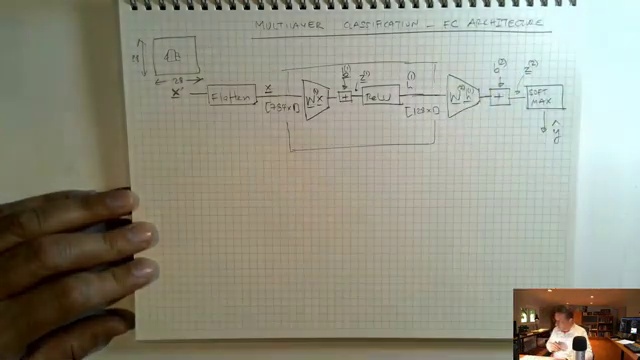 MULTILAYER CLASSIFICATION - FC ARCHITECTURE
28
28
X'
Flatten
x
[784x1]
W⁽¹⁾x
b⁽¹⁾
+
z⁽¹⁾
ReLU
h⁽¹⁾
[128x1]
W⁽²⁾h⁽¹⁾
b⁽²⁾
+
z⁽²⁾
SOFT
MAX
ŷ